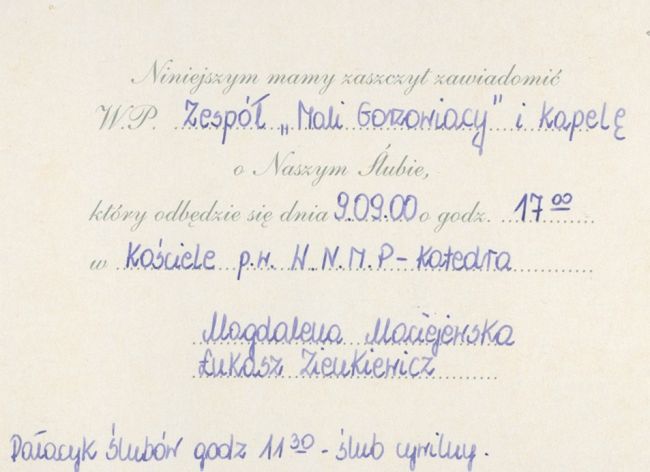 Niniejszym mamy zaszczyt zawiadomić
W.P. Zespół „Mali Gorzowiacy" i Kapelę
o Naszym Ślubie,
który odbędzie się dnia 9.09.00 o godz. 17 00
w Kościele p.w. W.N.M.P - Katedra
Magdalena Maciejewska
Łukasz Zienkiewicz
Pałacyk ślubów godz 11 30 - ślub cywilny.